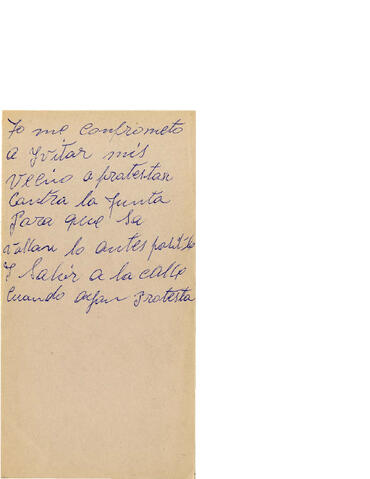 Yo me confrometo
a Yvitar mis
Vecino a protestar
Contra la Junta
Para que se
vallan lo antes posible
Y Salir a la calle
Cuando aigan Protesta